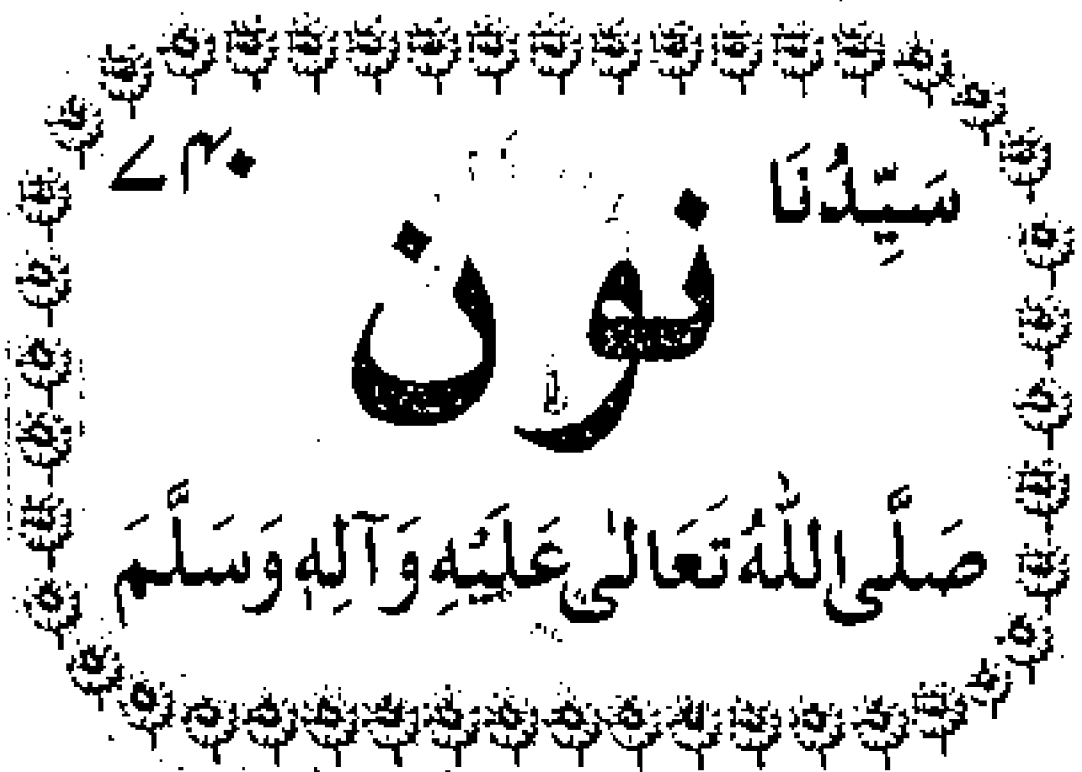 سَيِّدُنَا
نون
صَلَّى اللّٰهُ تَعَالٰى عَلَيْهِ وَآلِهٖ وَسَلَّمَ